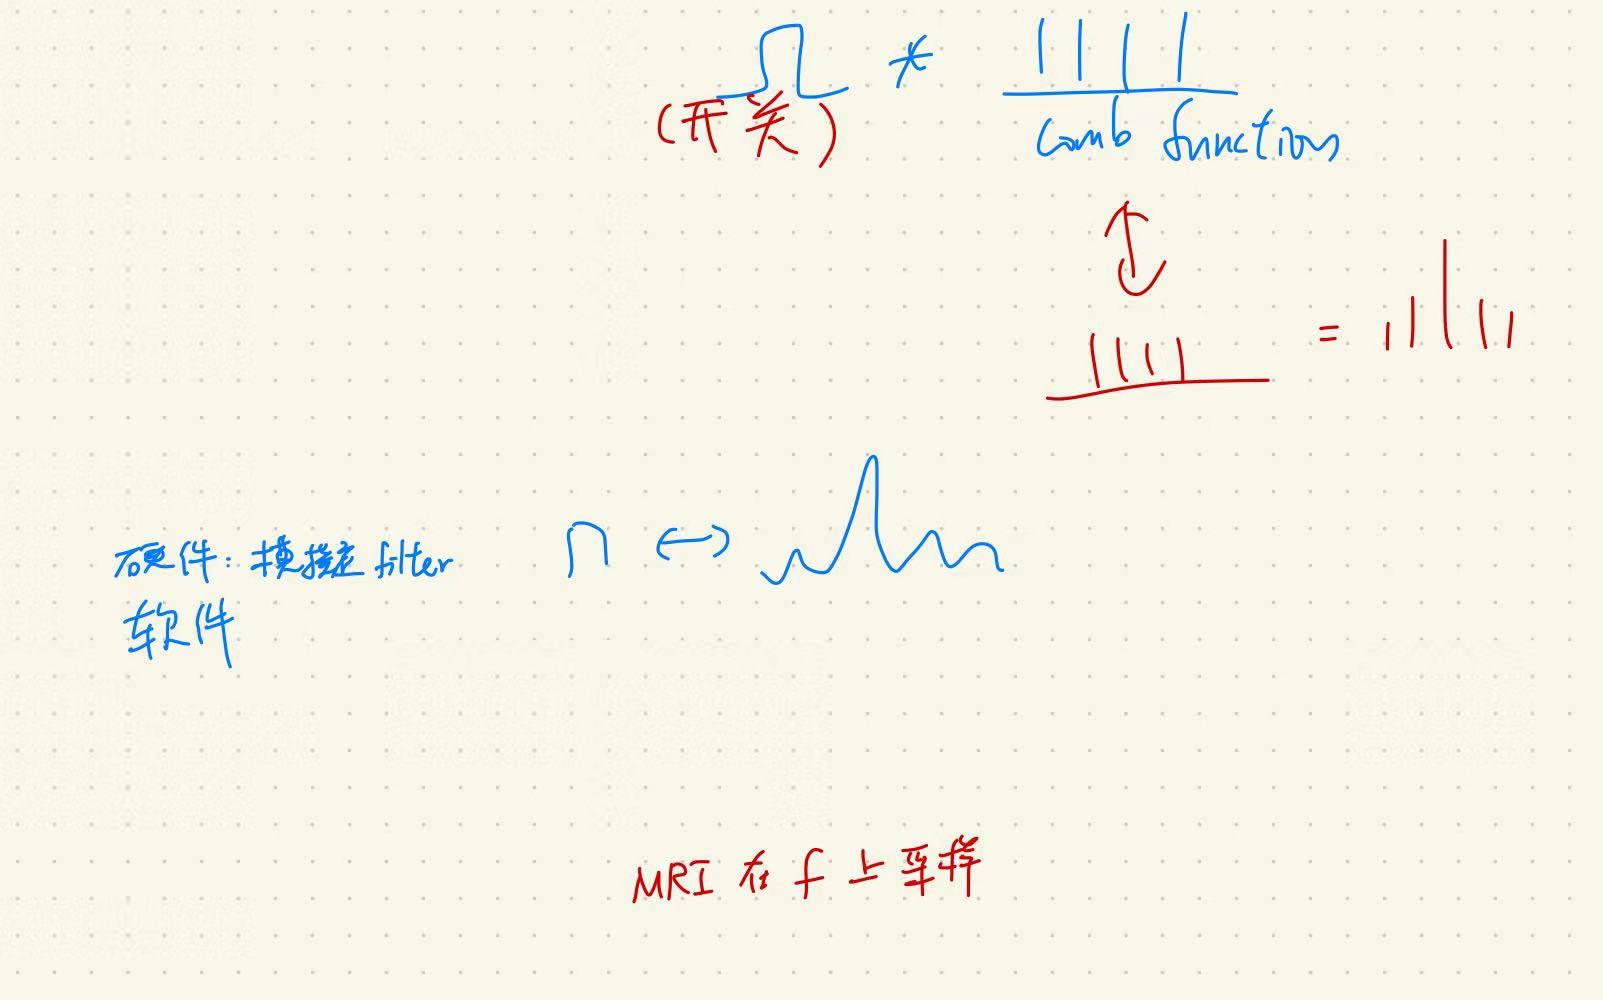 *
(开关)
comb function
=
硬件: 模拟 filter
软件
MRI 在 f 上采样